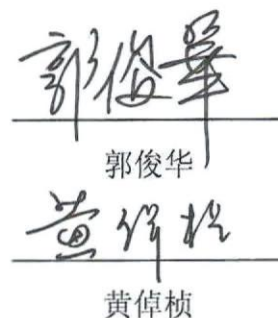 郭俊華
郭俊华
黄倬桢
黄倬桢